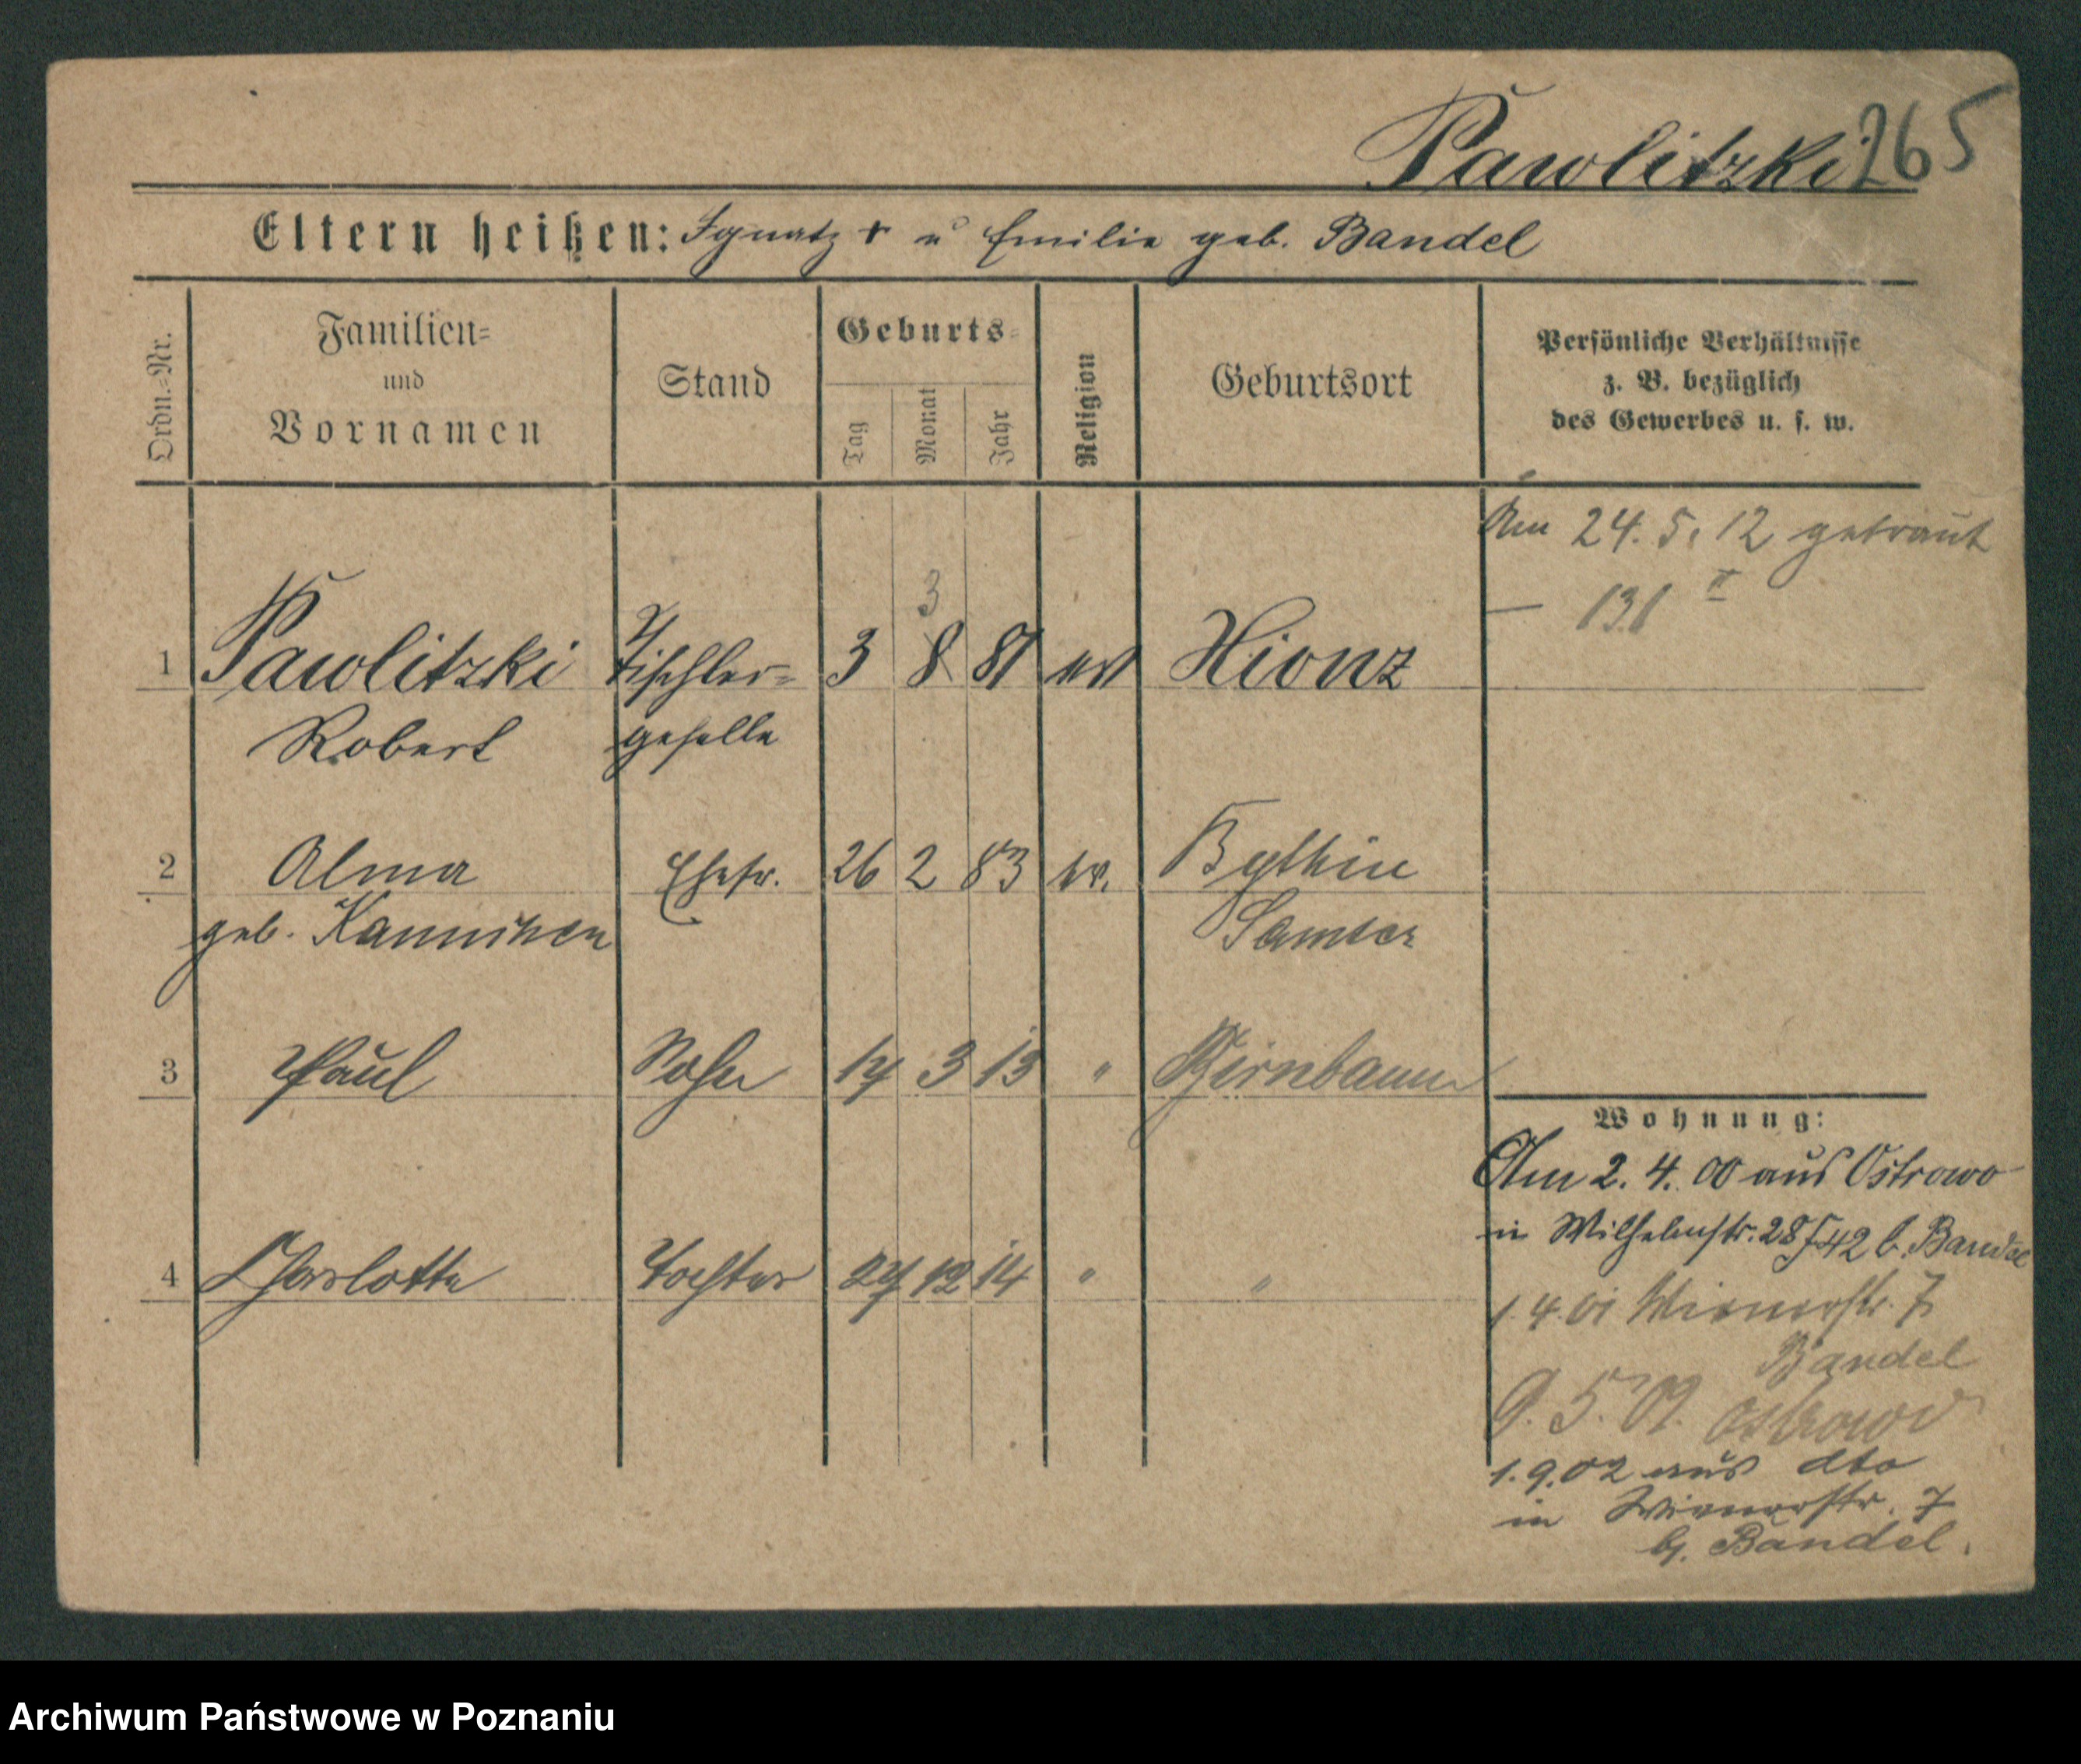 Pawlitzki 265
Eltern heißen: Ignatz + u Emilie geb. Bandel
Ordn.=Nr.
Familien=
und
Vornamen
Stand
Geburts=
Tag
Monat
Jahr
Religion
Geburtsort
Persönliche Verhältnisse
z. B. bezüglich
des Gewerbes u. s. w.
Am 24. 5. 12 getraut
— 131 II
3
1 Pawlitzki Tischler= 3 8 81 ev Xionz
Robert geselle
2 Alma Ehefr. 26 2 83 ev. Bythin
geb. Samter
3 Paul Sohn 14 3 13 " Birnbaum
4 Charlotte Tochter 24 12 14 " "
Wohnung:
Am 2. 4. 00 aus Ostrowo
in Wilhelmstr. 28 b. Bandel
1. 4. 01 Wienerstr. 7
Bandel
Ostrowo
1. 9. 02 aus dto
in Wienerstr. 7
b. Bandel.
Archiwum Państwowe w Poznaniu